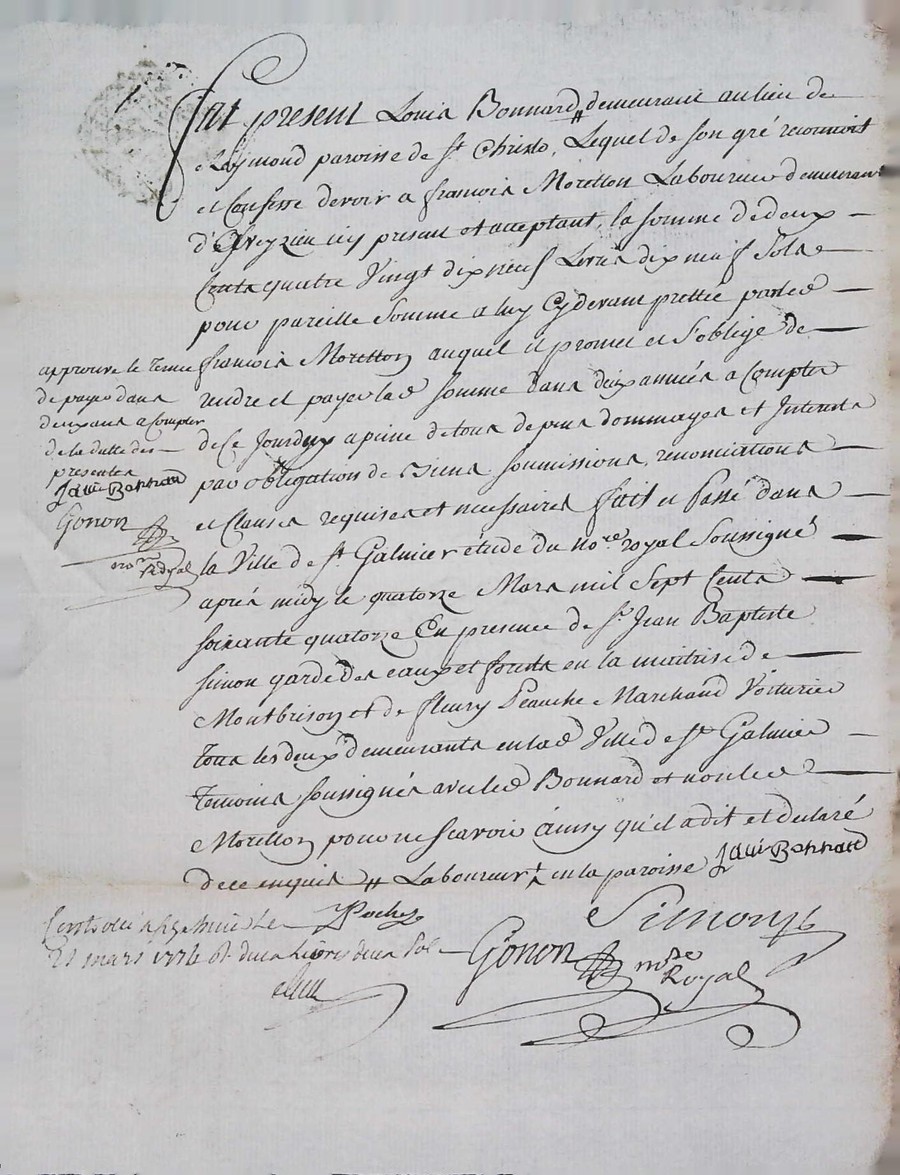 Fut present Louis Bonnard, # demeurant au lieu de
Reymond paroisse de St. Christo, Lequel de son gré reconnoit
et Confesse devoir a françois Moretton Laboureur demeurant
d'Esveyzieu icy present et acceptant, la somme de deux
Cents quatre Vingt dix neuf Livres dix neuf Sols
pour pareille Somme a luy Cy devant prettée par led
françois Moretton auquel il promet et s'oblige de
rendre et payer lad somme dans deux années a Compter
de Ce Jourduy a peine de tous depens dommages et Interets
par obligation de Biens soumissions, renonciations
et Clauses requises et necessaires fait et Passé dans
la Ville de St. Galmier étude du nore. royal Soussigné
aprés midy le quatorze Mars mil Sept Cents
soixante quatorze En presence de Sr. Jean Baptiste
Simon garde des eaux et forets en la maitrise de
Montbrison et de fleury Peauche Marchand Voiturier
tous les deux demeurants en lad Ville de St Galmier
temoins soussignés avec led Bonnard et non led
Moretton pour ne scavoir Ainsy qu'il a dit et declaré
de ce enquis # Laboureur en la paroisse Loui Bonnard
approuve le terme
de payer dans
deux ans a Compter
de la datte des
presentes
Loui Bonnard
Gonon
nore. Royal
Simon
Gonon nore
Royal
Controlé a St Galmier Le
21 mars 1774 R. deux Livres deux Sol